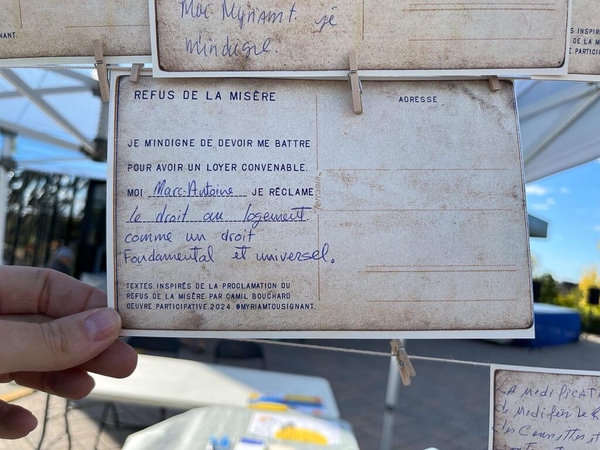 Moi Myriamt. je
m'indigne.
REFUS DE LA MISÈRE
ADRESSE
JE M'INDIGNE DE DEVOIR ME BATTRE
POUR AVOIR UN LOYER CONVENABLE.
MOI Marc-Antoine JE RÉCLAME
le droit au logement
comme un droit
Fondamental et universel.
TEXTES INSPIRÉS DE LA PROCLAMATION DU
REFUS DE LA MISÈRE PAR CAMIL BOUCHARD
OEUVRE PARTICIPATIVE.2024. @MYRIAMTOUSIGNANT.
NANT.
S INSPIR
DE LA M
PARTICIP